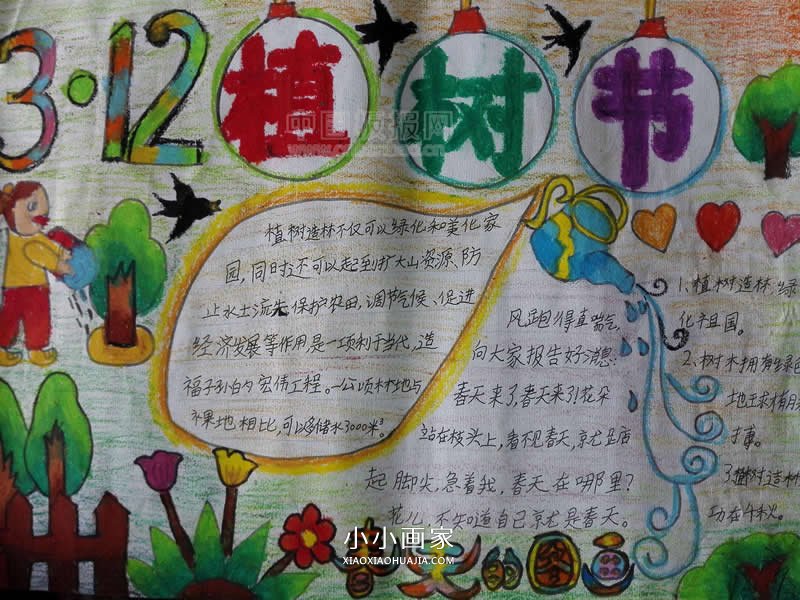 3·12 植树节
中国板报网
植树造林不仅可以绿化和美化家
园,同时还可以起到扩大山资源、防
止水土流失保护农田,调节气候、促进
经济发展等作用是一项利于当代,造
福子孙的宏伟工程。一公顷林地与
裸地相比,可以多储水3000米³。
风跑得直喘气,
向大家报告好消息:
春天来了,春天来了!花朵
站在枝头上,看不见春天,就踮
起脚尖,急着找,春天在哪里?
花儿,不知道自己就是春天。
1、植树造林,绿
化祖国。
2、树木拥有绿色
地球才有
搏。
3、植树造林
功在千秋。
春天的
小小画家
XIAOXIAOHUAJIA.COM